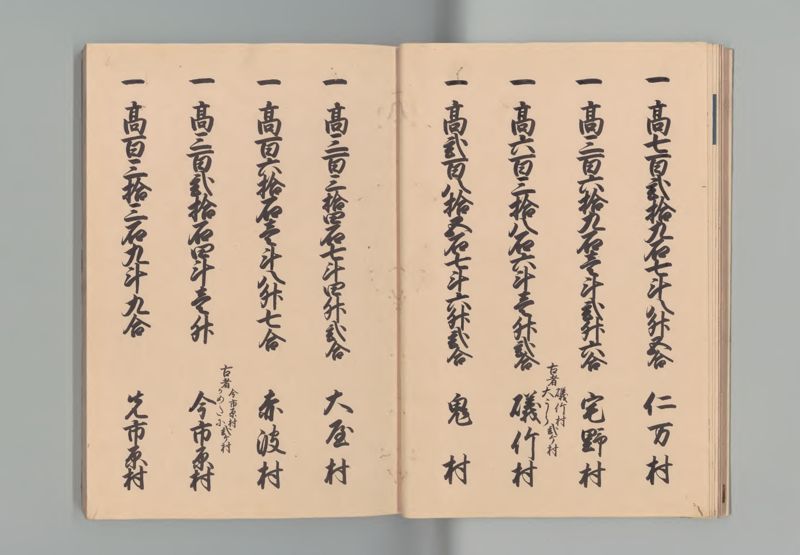 一 高七百弐拾九石七斗八升五合 仁万村
一 高三百六拾九石壱斗弐升六合 宅野村
古者 磯竹村
大うら 弐ケ村
一 高六百三拾八石六斗壱升弐合 磯竹村
一 高弐百八拾五石七斗六升弐合 鬼村
一 高三百三拾四石七斗四升弐合 大屋村
一 高百六拾石壱斗八升七合 赤波村
古者 今市原村
弐ケ村
一 高三百弐拾石四斗壱升 今市原村
一 高百三拾三石九斗九合 先市原村